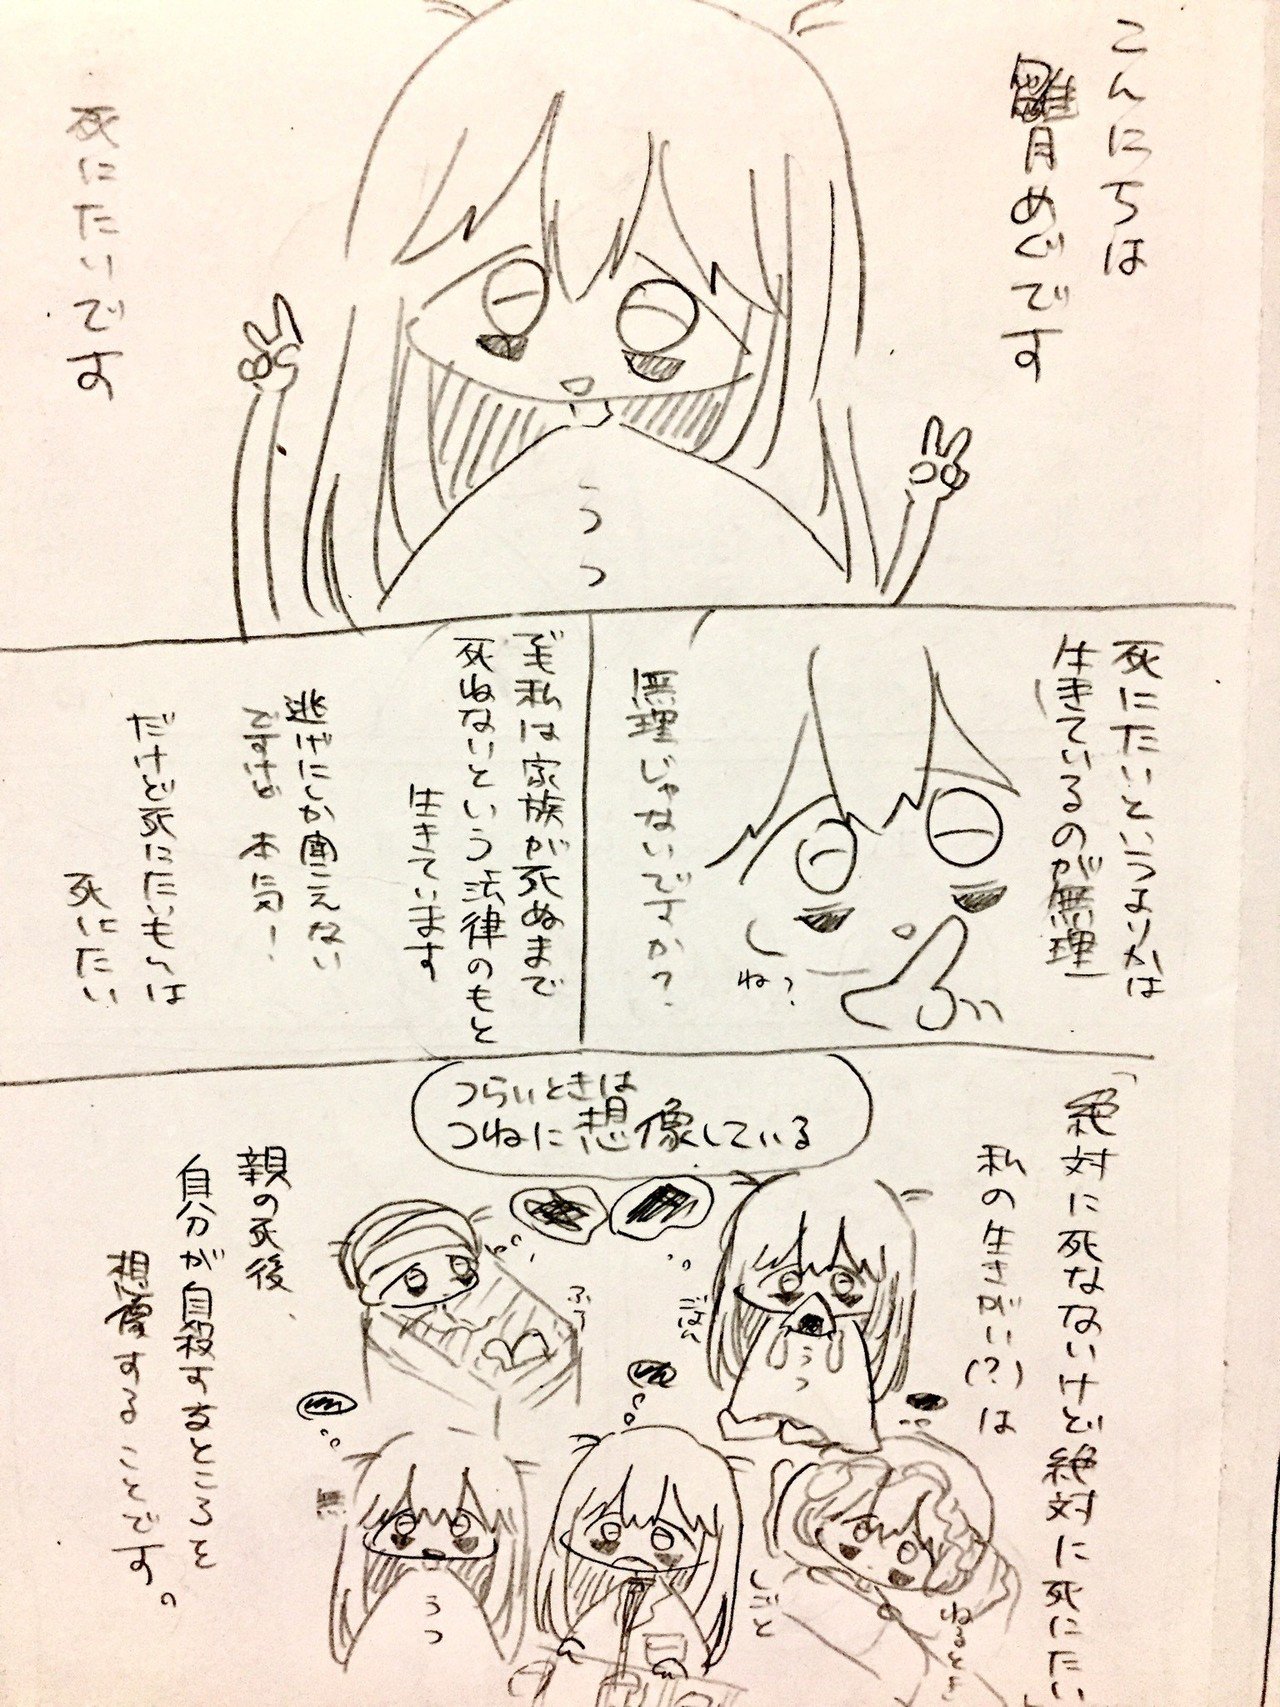 こんにちは
雛月めぐです
死にたいです
うつ
死にたいというよりかは
生きているのが無理
無理じゃないですか?
ね?
でも私は家族が死ぬまで
死ねないという法律のもと
生きています
逃げにしか聞こえない
ですけど 本気!
だけど死にたいものは
死にたい
「絶対に死なないけど絶対に死にたい」
私の生きがい(?)は
つらいときは
つねに想像している
ごはん
うつ
ふろ
ねるとき
しごと
無
うつ
親の死後、
自分が自殺するところを
想像することです。